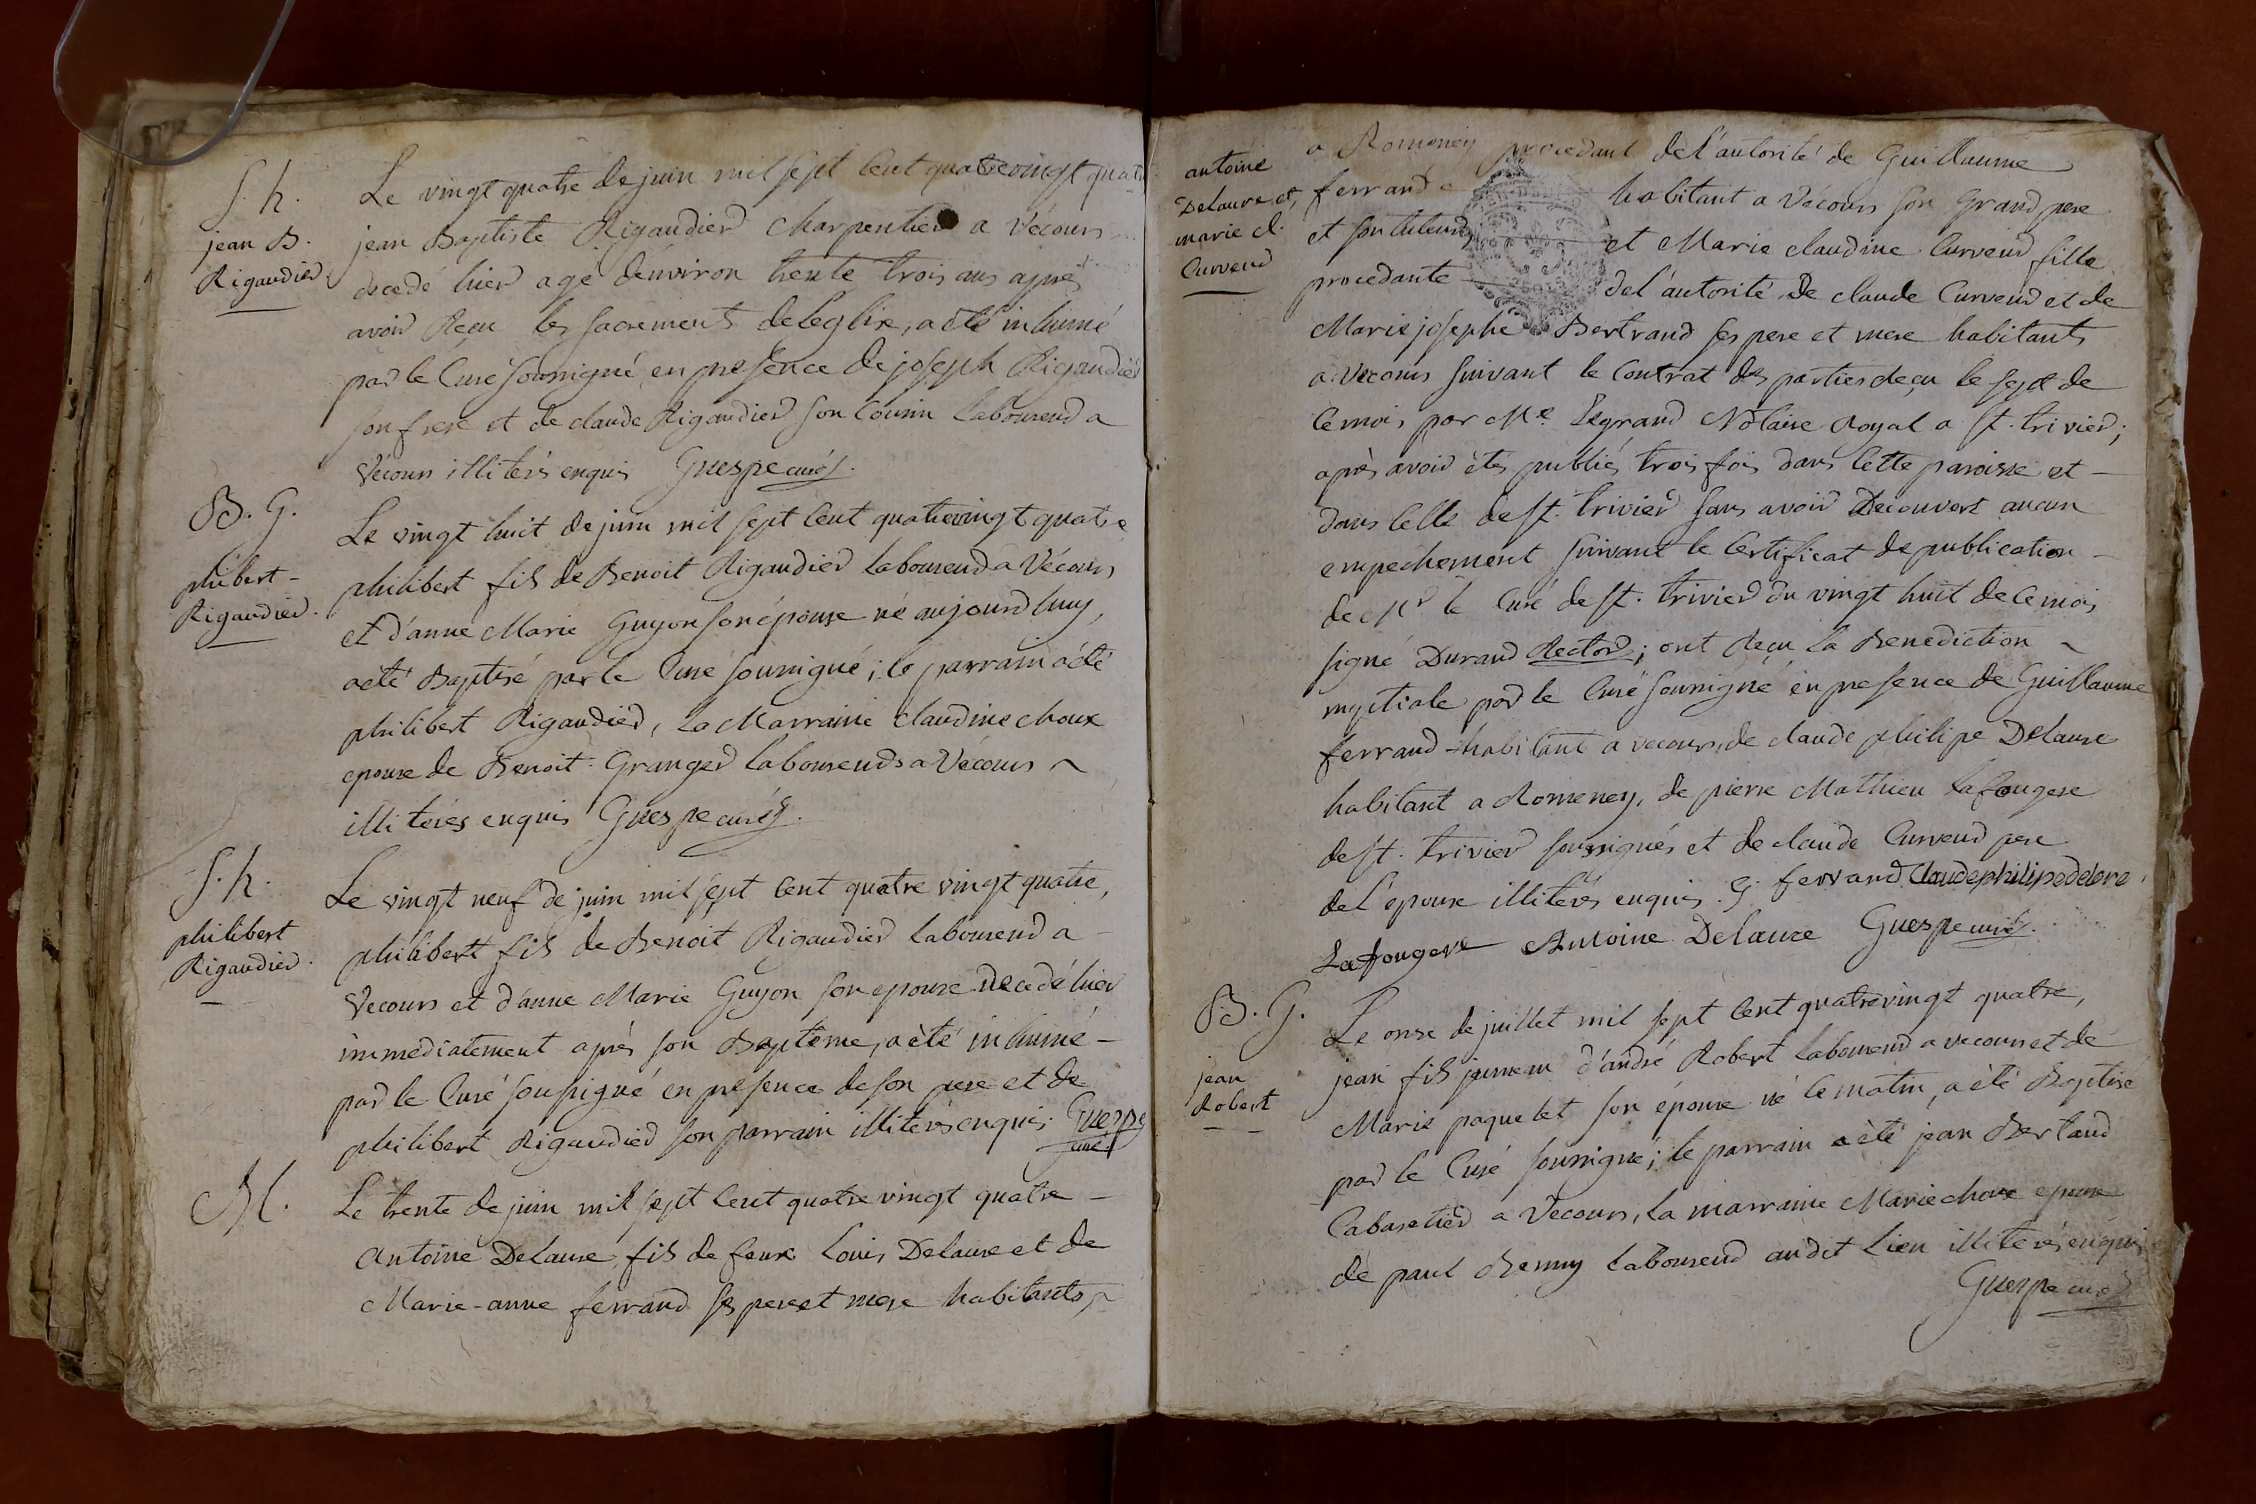 S. h.
jean B.
Rigaudier
Le vingt quatre de juin mil sept cent quatrevingt quatre
jean Baptiste Rigaudier charpentier a Vécours
decedé hier agé denviron trente trois ans après
avoir reçu les sacrements de leglise, a été inhumé
par le Curé soussigné en presence de joseph Rigaudier
son frere et de claude Rigaudier son cousin laboureur a
Vécours illiterés enquis Guespe curé
B. G.
phibert
Rigaudier.
Le vingt huit de juin mil sept cent quatrevingt quatre
philibert fils de Benoit Rigaudier laboureur a Vécours
et d'anne Marie Guyon son épouse né aujourd huy,
a été Baptisé par le Curé soussigné; le parrain a été
philibert Rigaudier, La Marraine claudine choux
epouse de Benoit Granger laboureurs a Vécours ~
illiterés enquis Guespe curé.
S. h.
philibert
Rigaudier.
Le vingt neuf de juin mil sept cent quatre vingt quatre,
philibert fils de Benoit Rigaudier laboureur a -
Vecours et d'anne Marie Guyon son epouse decedé hier
immediatement après son Baptême, a été inhumé -
par le Curé soussigné en presence de son pere et de
philibert Rigaudier son parrain illiterés enquis. Guespe
curé
M.
Le trente de juin mil sept cent quatre vingt quatre -
Antoine Delaure fils de feux Louis Delaure et de
Marie-anne ferrand ses pere et mere habitants
antoine
Delaure et
marie cl.
Curveur
a Romeney procedant de l'autorité de Guillaume
ferrand habitant a Vécours son grand pere
et son tuteur et Marie claudine Curveur fille
procedante de l'autorité de claude Curveur et de
Marie josephe Bertrand ses pere et mere habitants
a Vecours suivant le Contrat des parties reçu le sept de
ce mois par Me. Legrand Notaire Royal a St. trivier;
après avoir étés publiés trois fois dans cette paroisse et -
dans celle de St. trivier sans avoir Decouvert aucun
empechement suivant le Certificat de publication -
de Mr le Curé de St. trivier du vingt huit de ce mois
signé Durand Rector; ont reçu la Benediction ~
nuptiale par le Curé soussigné en presence de Guillaume
ferrand habitant a vecours, de claude philipe Delaure
habitant a Romeney, de pierre Mathieu Lafougere
de St. trivier soussignés et de claude Curveur pere
de l'epouse illiterés enquis. G. ferrand Claudephilipedelore
Lafougere Antoine Delaure Guespe curé.
B. G.
jean
Robert
Le onze de juillet mil sept cent quatrevingt quatre,
jean fils jumeau d'andré Robert laboureur a vecours et de
Marie paquelet son épouse né ce matin, a été Baptisé
par le Curé soussigné; le parrain a été jean Bertaud
Cabaretier a Vecours, la marraine Marie choux epouse
de paul Remy laboureur audit lieu illiterés enquis
Guespe curé